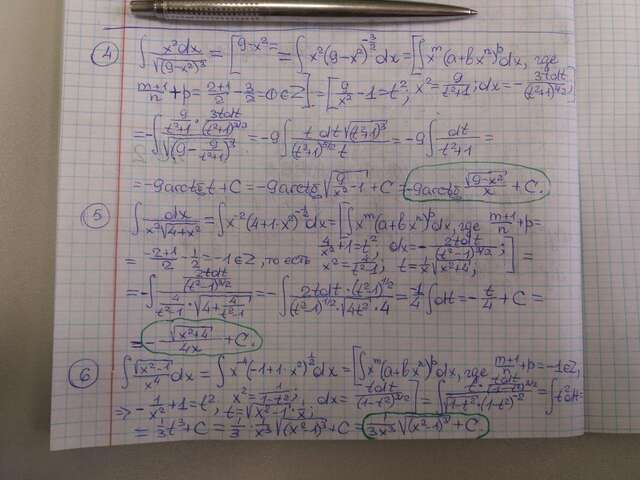 4 ∫ x²dx / √(9-x²)³ = [9-x²= = ∫ x²(9-x²)^(-3/2) dx = [∫ x^m (a+bx^n)^p dx, где
(m+1)/n + p = (2+1)/2 - 3/2 = 0 ∈ Z] = [9/x² - 1 = t², x² = 9/(t²+1); dx = - 3tdt/(t²+1)^(3/2)]
= -∫ (9/(t²+1) · 3tdt/(t²+1)^(3/2)) / √(9 - 9/(t²+1))³ = -9∫ t dt √(t²+1)³ / ((t²+1)^(5/2) t) = -9∫ dt/(t²+1) =
= -9arctg t + C = -9arctg √(9/x² - 1) + C = -9arctg √(9-x²)/x + C.
5 ∫ dx / (x²√(4+x²)) = ∫ x^(-2) (4+1·x²)^(-1/2) dx = [∫ x^m (a+bx^n)^p dx, где (m+1)/n + p =
= (-2+1)/2 - 1/2 = -1 ∈ Z, то есть 4/x² + 1 = t², dx = - 2tdt/(t²-1)^(3/2); x² = 4/(t²-1), t = 1/x √(x²+4); ] =
= -∫ (2tdt/(t²-1)^(3/2)) / (4/(t²-1) · √(4 + 4/(t²-1))) = -∫ 2tdt·(t²-1)^(1/2) / ((t²-1)^(1/2) · √(4t²) · 4) = -1/4 ∫ dt = - t/4 + C =
= - √(x²+4)/4x + C.
6 ∫ √(x²-1)/x⁴ dx = ∫ x^(-4) (-1+1·x²)^(1/2) dx = [∫ x^m (a+bx^n)^p dx, где (m+1)/n + p = -1 ∈ Z,
⇒ - 1/x² + 1 = t², x² = 1/(1-t²); t = √(x²-1) · 1/x; dx = tdt/(1-t²)^(3/2)] = ∫ t² dt =
= 1/3 t³ + C = 1/3 · 1/x³ √(x²-1)³ + C = 1/3x³ √(x²-1)³ + C.